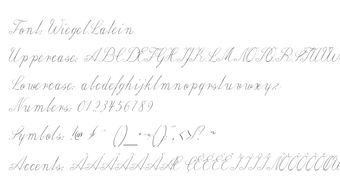 Font: WiegelLatein
Uppercase: ABCDEFGHIJKLMNOPQRSTUVW
Lowercase: abcdefghijklmnopqrstuvwxyz
Numbers: 0123456789
Symbols: ()_
Accents: ÀÁÂÃÄÅÆ ÇÈÉÊË ÌÍÎÏ ÑÒÓÔÕÖ